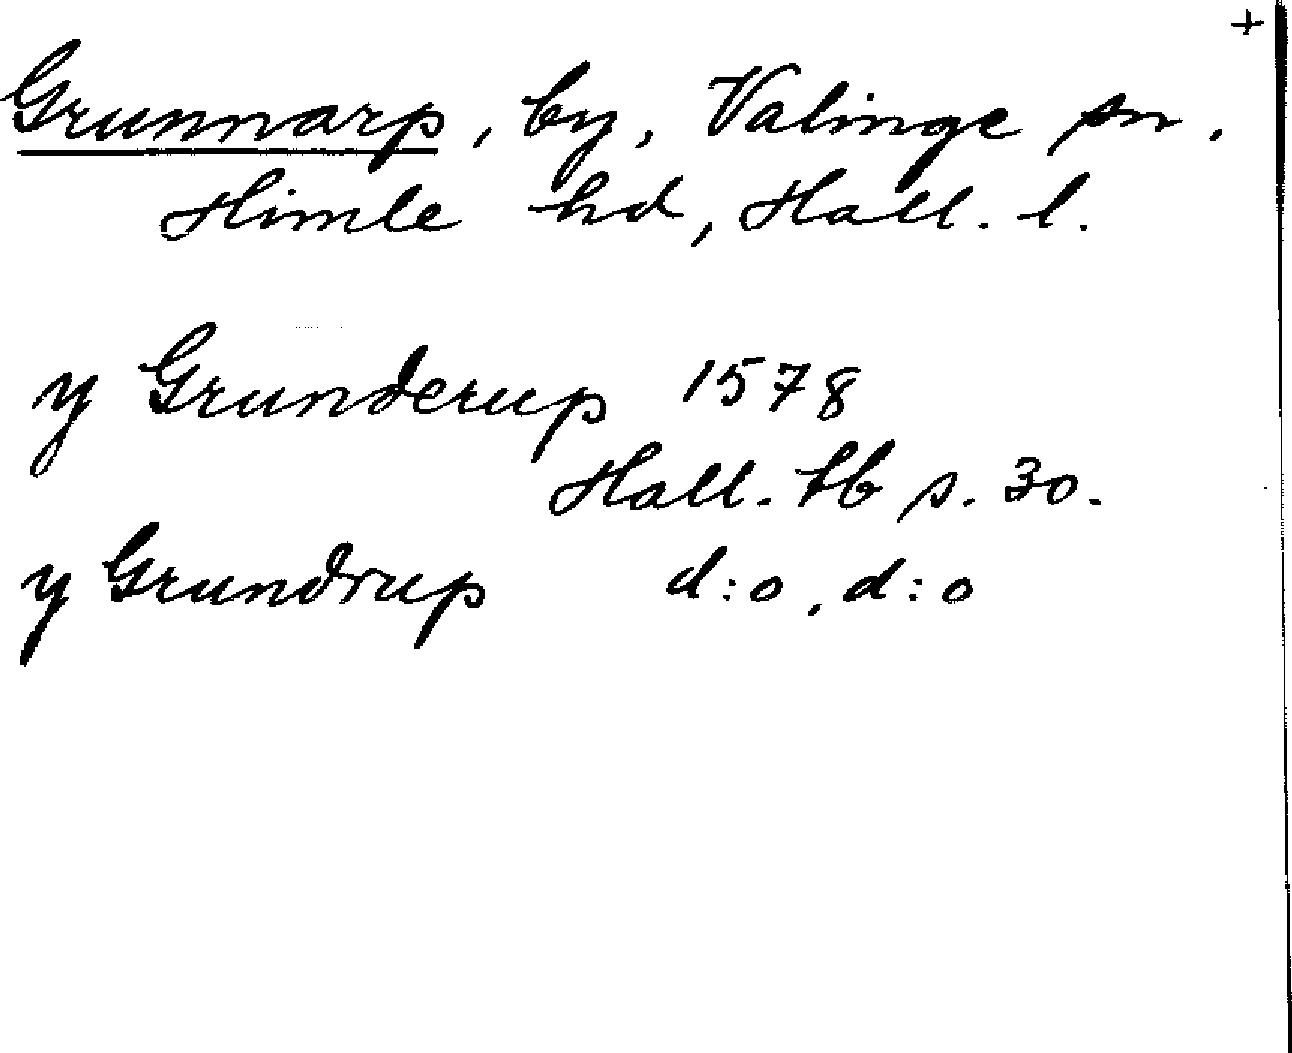 +
Grunnarp, by, Valinge sn.
Himle hd, Hall. l.
y Grunderup 1578
Hall. tb s. 30.
y Grundrup d:o, d:o